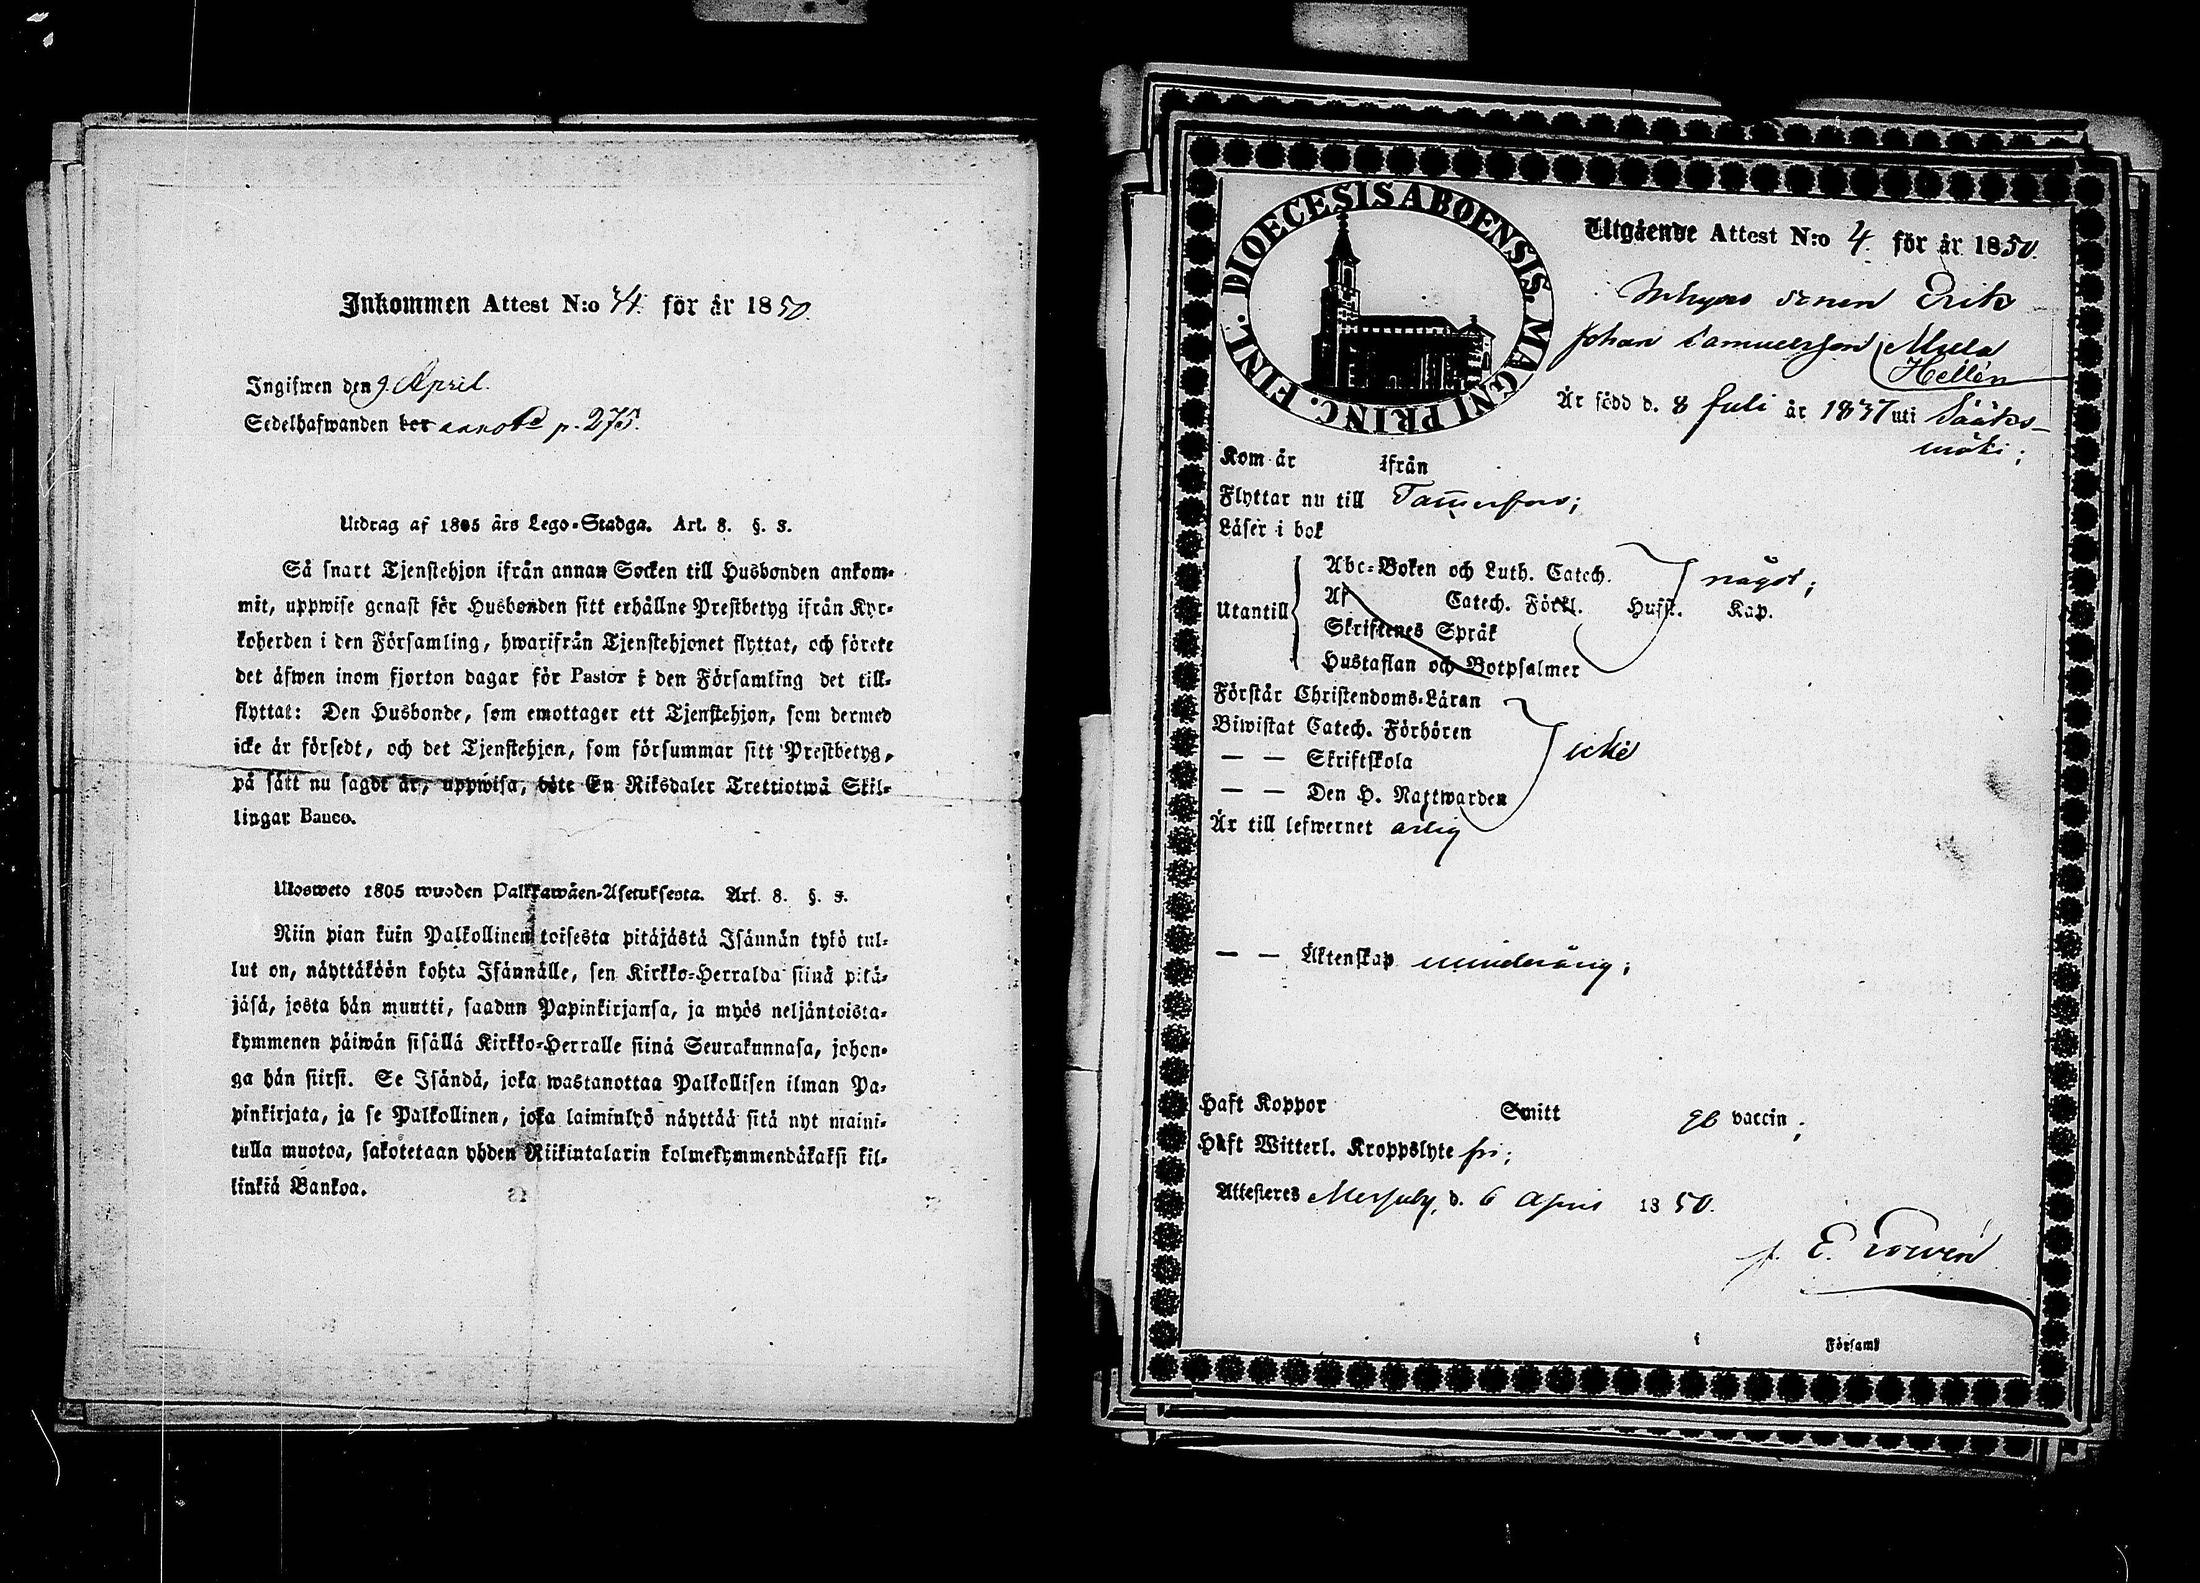 Inkommen Attest N:o 34. för år 1850.
Ingifwen den 9. April.
Sedelhafwanden ber p. 275.
Utdrag af 1805 års Lego-Stadga. Art. 8. §. 3.
Så snart Tjenstehjon ifrån annan Socken till Husbonden ankom-
mit, uppwise genast för Husbonden sitt erhållne Prestbetyg ifrån Kyr-
koherden i den Församling, hwarifrån Tjenstehjonet flyttat, och förete
det äfwen inom fjorton dagar för Pastor i den Församling det till-
flyttat: Den Husbonde, som emottager ett Tjenstehjon, som dermed
icke är försedt, och det Tjenstehjon, som försummar sitt Prestbetyg,
på sätt nu sagdt är, uppwisa, böte En Riksdaler Trettiotwå Skil-
lingar Banco.
Ulosweto 1805 wuoden Palkkawäen-Asetuksesta. Art. 8. §. 3.
Niin pian kuin Palkollinen toisesta pitäjästä Isännän tykö tul-
lut on, näyttäköön kohta Isännälle, sen Kirkko-Herralda siinä pitä-
jäsä, josta hän muutti, saadun Papinkirjansa, ja myös neljäntoista-
kymmenen päiwän sisällä Kirkko-Herralle siinä Seurakunnasa, johon-
ga hän siirsi. Se Isändä, joka wastanottaa Palkollisen ilman Pa-
pinkirjata, ja se Palkollinen, joka laiminlyö näyttää sitä nyt maini-
tulla muotoa, sakotetaan yhden Riikintalarin kolmekymmendäkaksi kil-
linkiä Bankoa.
DIOECESIS ABOENSIS. MAGNI PRINC. FINL.
Utgående Attest N:o 4. för år 1850.
Inhyses sonen Erik
Johan Samuelsson
Hellén
Är född d. 8 Juli år 1837 uti Sääks-
mäki;
Kom år ifrån
Flyttar nu till Tammerfors;
Läser i bok
Utantill
Abc-Boken och Luth. Catech. något;
Af Catech. Förkl. Husst. Kap.
Skriftenes Språk
Hustaflan och Botpsalmer
Förstår Christendoms-Läran
Biwistat Catech. Förhören
— — Skriftskola icke
— — Den H. Nattwarden
Är till lefwernet ärlig
— — Äktenskap minderårig;
Haft Koppor Smitt gb vaccin;
Haft Witterl. Kroppslyte fri;
Attesteres Messuby, d. 6 April 1850.
E.
i Församl